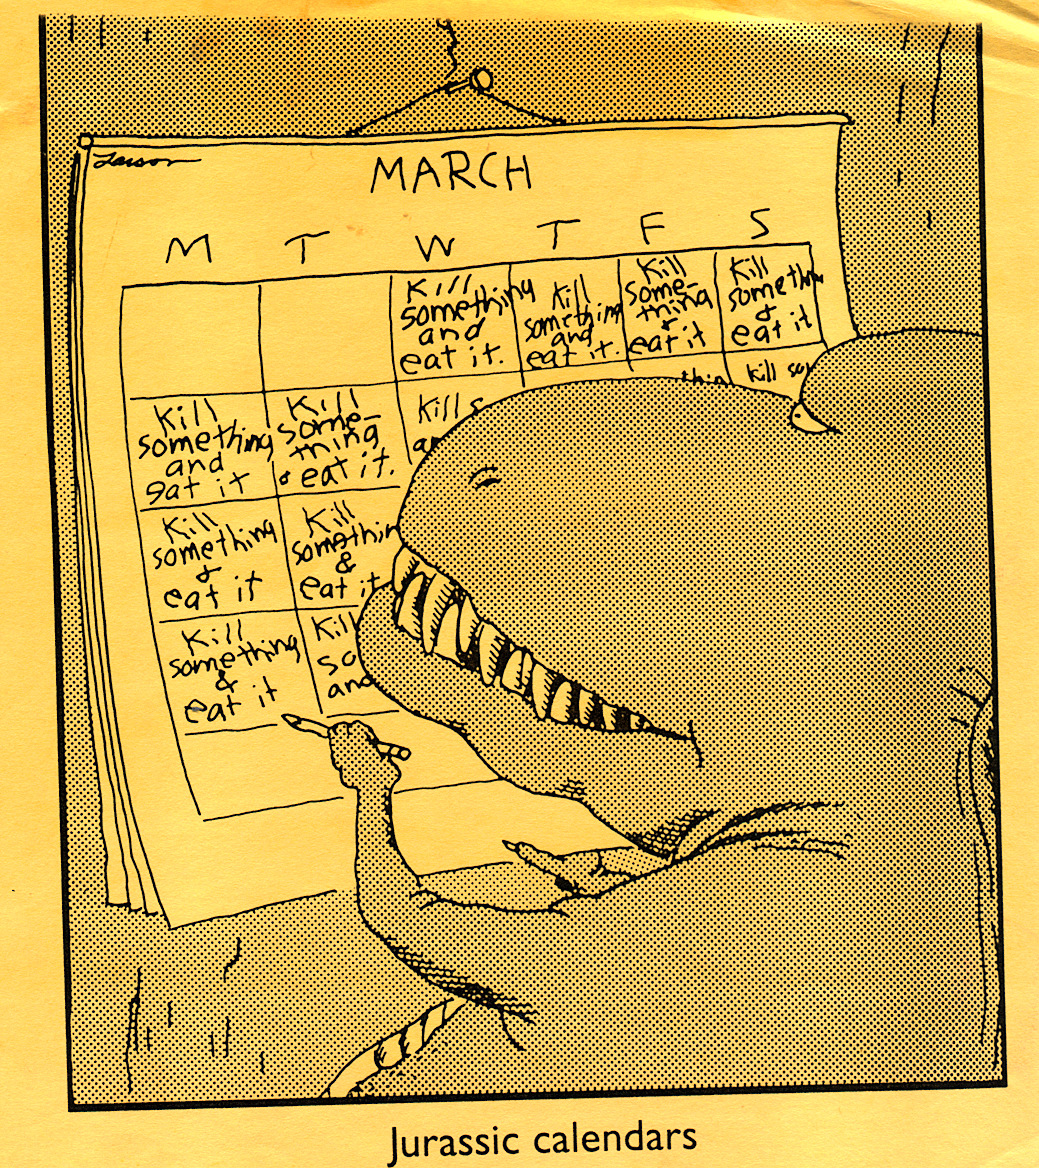 Larson
MARCH
M T W T F S
Kill
something
and
eat it.
Kill
something
and
eat it.
Kill
some-
thing
+
eat it
Kill
somethin
&
eat it
Kill
something
and
eat it
Kill
some-
thing
& eat it.
Kill s
an
thin
kill so
Kill
something
&
eat it
Kill
somethin
&
eat it
Kill
something
&
eat it
Kill
so
and
Jurassic calendars